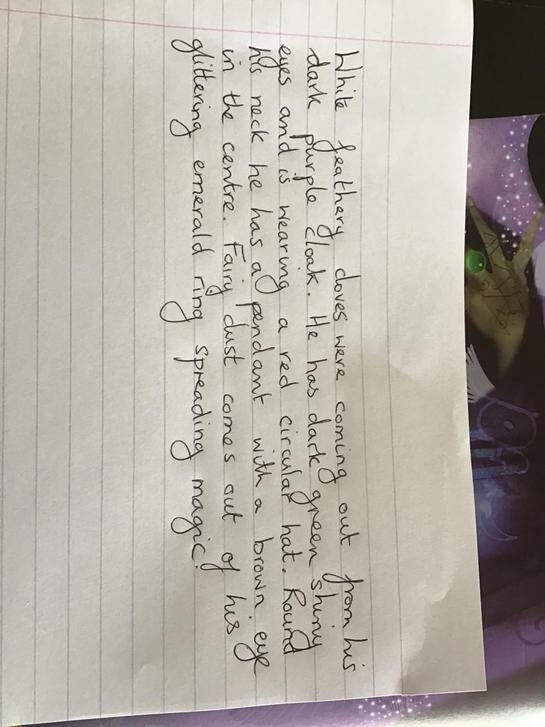 White feathery doves were coming out from his
dark purple cloak. He has dark green shiny
eyes and is wearing a red circular hat. Round
his neck he has a pendant with a brown eye
in the centre. Fairy dust comes out of his
glittering emerald ring spreading magic!